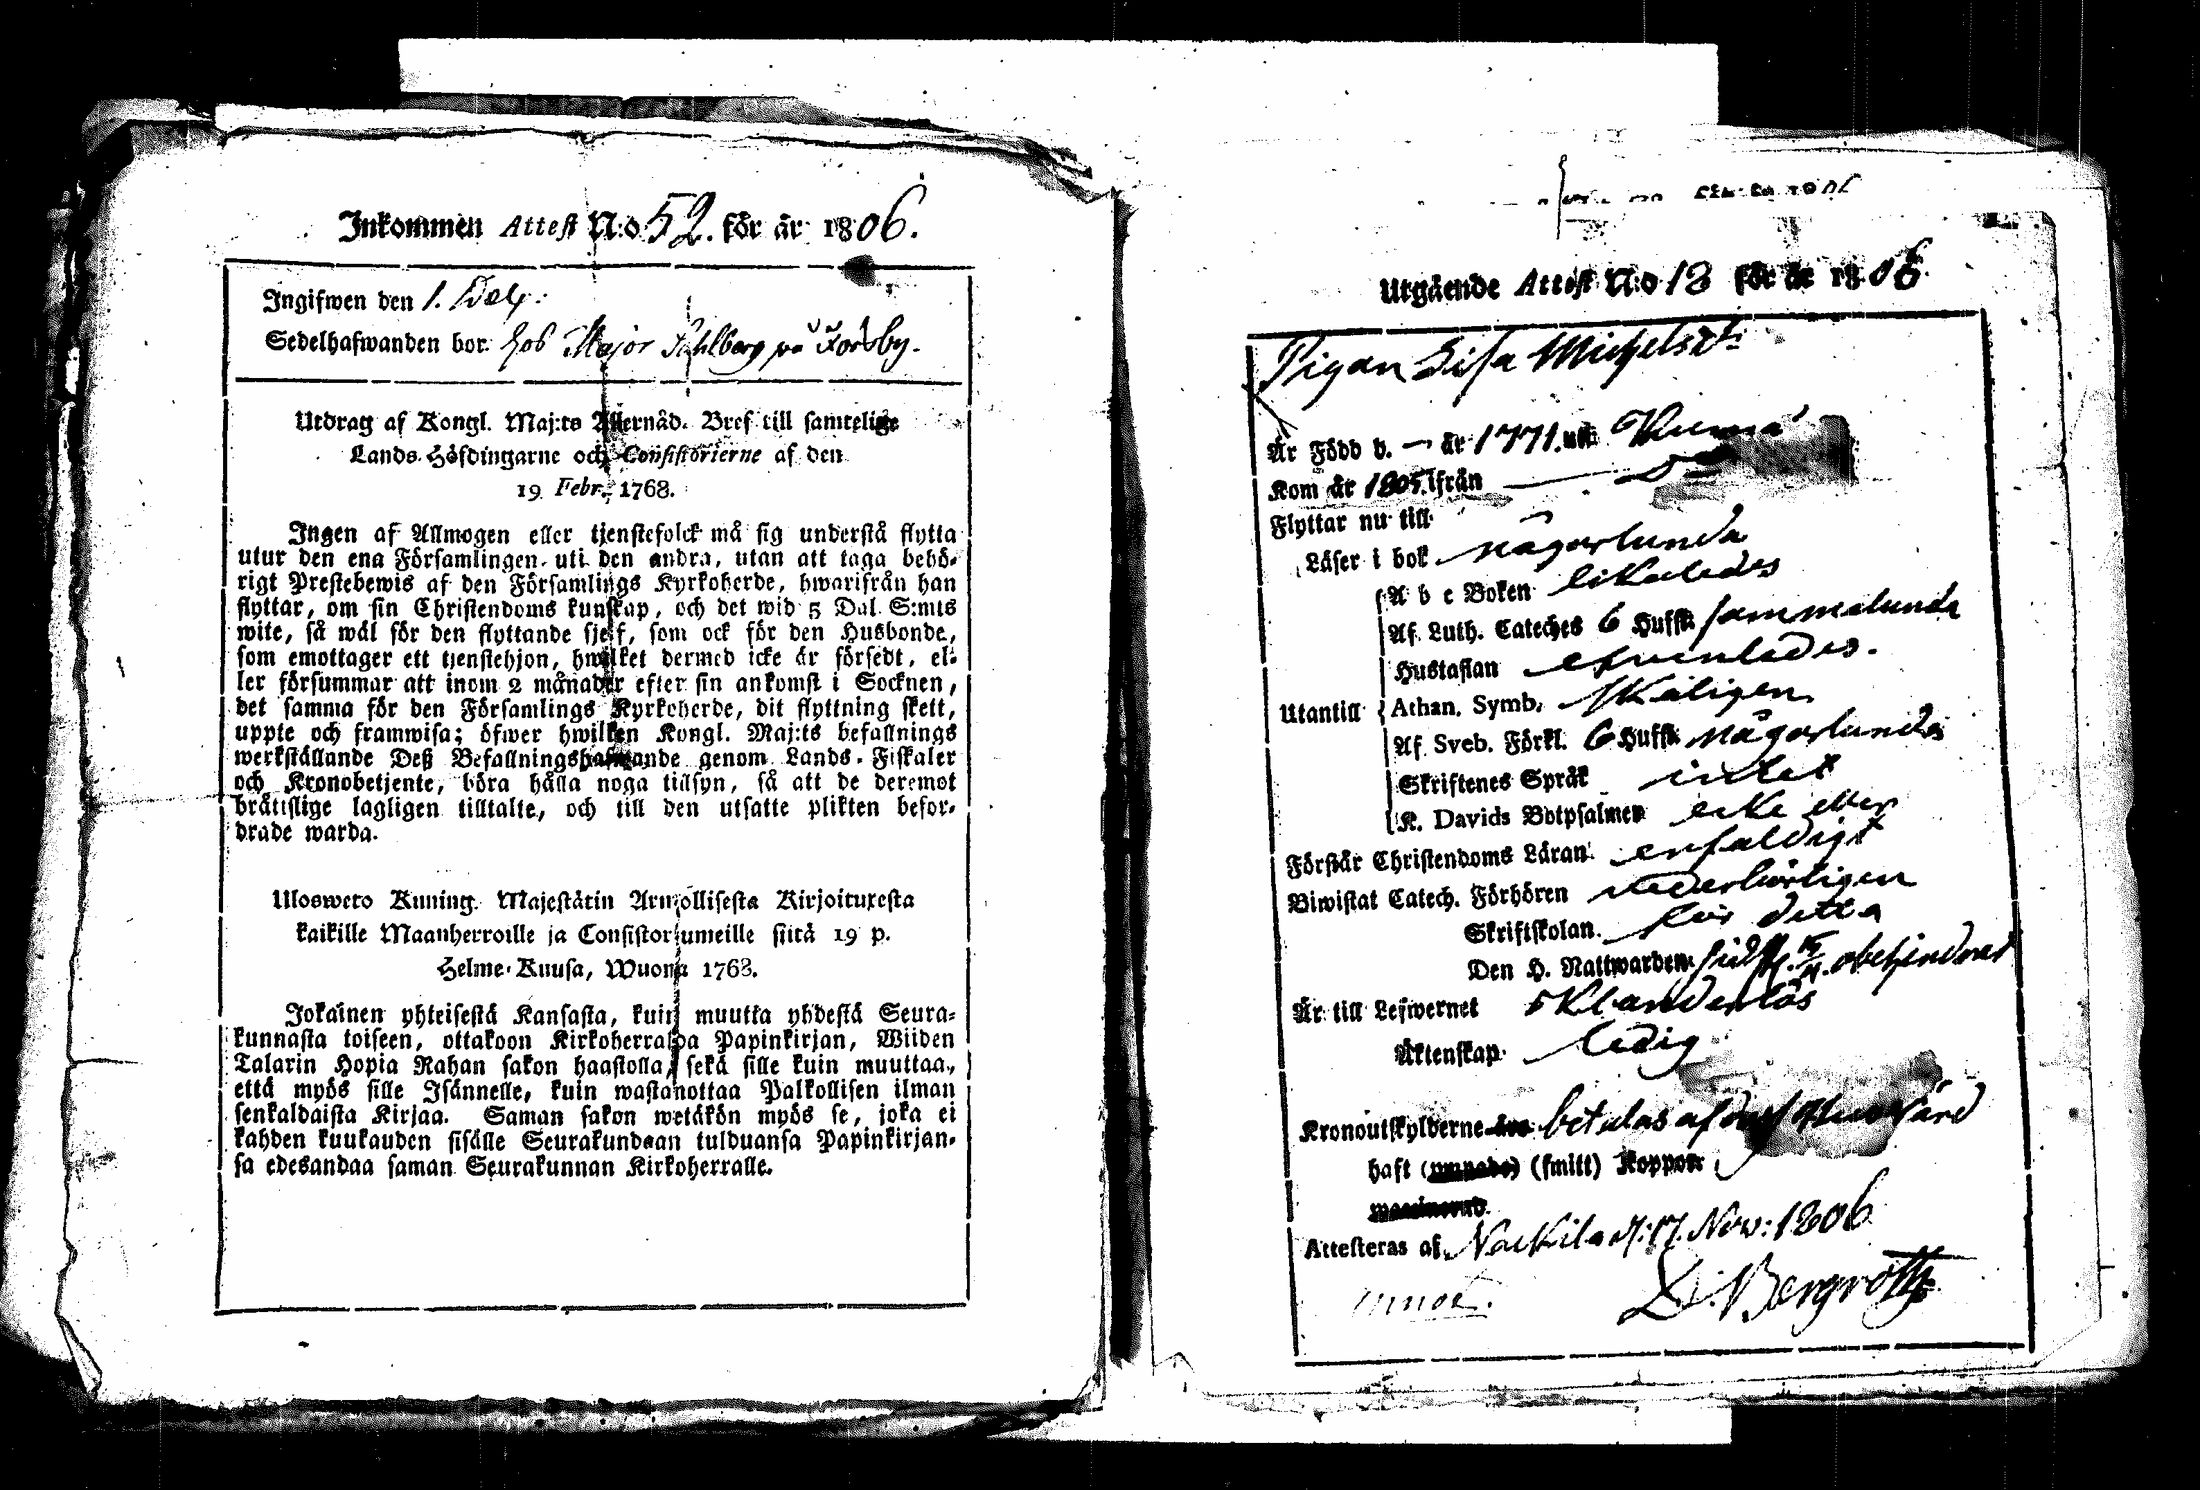 Inkommen Attest N:o 52. för år 1806.
Ingifwen den 1. Dec:
Sedelhafwanden bor. hos Major Pahlberg på Forsby.
Utdrag af Kongl. Maj:ts Allernåd. Bref till samtelige
Lands-Höfdingarne och Consistorierne af den
19 Febr. 1768.
Ingen af Allmogen eller tjenstefolck må sig understå flytta
utur den ena Församlingen uti den andra, utan att taga behö-
rigt Prestebewis af den Församlings Kyrkoherde, hwarifrån han
flyttar, om sin Christendoms kunskap, och det wid 5 Dal. S:mts
wite, så wäl för den flyttande sjelf, som ock för den Husbonde,
som emottager ett tjenstehjon, hwilket dermed icke är försedt, el-
ler försummar att inom 2 månader efter sin ankomst i Socknen,
det samma för den Församlings Kyrkoherde, dit flyttning skett,
uppte och framwisa; öfwer hwilken Kongl. Maj:ts befallnings
werkställande Deß Befallningshafwande genom Lands-Fiskaler
och Kronobetjente, böra hålla noga tillsyn, så att de deremot
brätislige lagligen tilltalte, och till den utsatte plikten befor-
drade warda.
Uloswето Kuning. Majestätin Armollisesta Kirjoituxesta
kaikille Maanherroille ja Consistoriumeille siitä 19 p.
Helme-Kuusa, Wuonna 1768.
Jokainen yhteisestä Kansasta, kuin muutta yhdestä Seura-
kunnasta toiseen, ottakoon Kirkoherralda Papinkirjan, Wiiden
Talarin Hopia Rahan sakon haastolla, sekä sille kuin muuttaa,
että myös sille Isännelle, kuin wastanottaa Palkollisen ilman
senkaldaista Kirjaa. Saman sakon wetäkön myös se, joka ei
kahden kuukauden sisälle Seurakundaan tulduansa Papinkirjan-
sa edesandaa saman Seurakunnan Kirkoherralle.
Utgående Attest N:o 18 för år 1806
Pigan Lisa Michelsdr:
Är Född d. — år 1771. uti
Kom år 1805. ifrån — Do
Flyttar nu till
Läser i bok någorlunda
A b c Boken likaledes
Af Luth. Cateches 6 Hufst. sammalunda
Hustaflan efvenledes.
Utantill Athan. Symb. skäligen
Af Sveb. Förkl. 6 Hufst. någorlunda
Skriftenes Språk intet
K. Davids Botpsalmer icke eller
Förstår Christendoms Läran enfaldigt
Biwistat Catech. Förhören vederbörligen
Skriftskolan. för detta
Den H. Nattwarden obehindrad
Är till Lefwernet oklanderlös
Äktenskap. ledig
Kronoutskylderne äro betalas af
haft (smitt) Koppor
Attesteras af Nackila d: 17. Nov: 1806
D. Bergroth